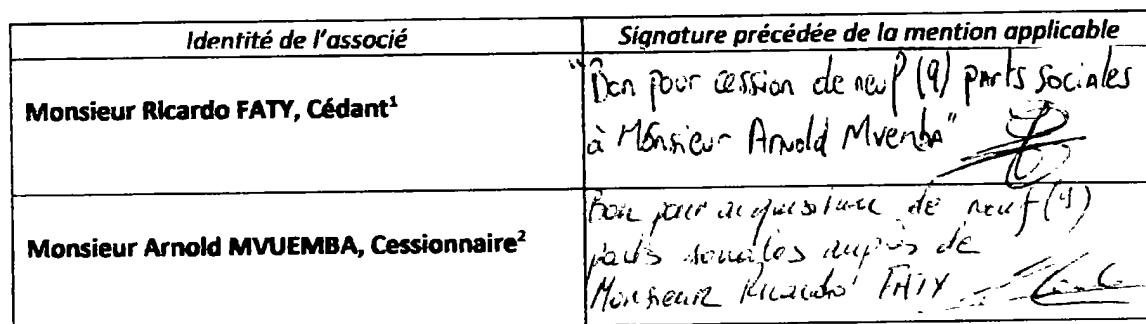 Identité de l'associé
Signature précédée de la mention applicable
Monsieur Ricardo FATY, Cédant¹
"Bon pour cession de neuf (9) parts sociales
à Monsieur Arnold Mvemba"
Monsieur Arnold MVUEMBA, Cessionnaire²
Bon pour acquisition de neuf (9)
parts sociales auprès de
Monsieur Ricardo FATY